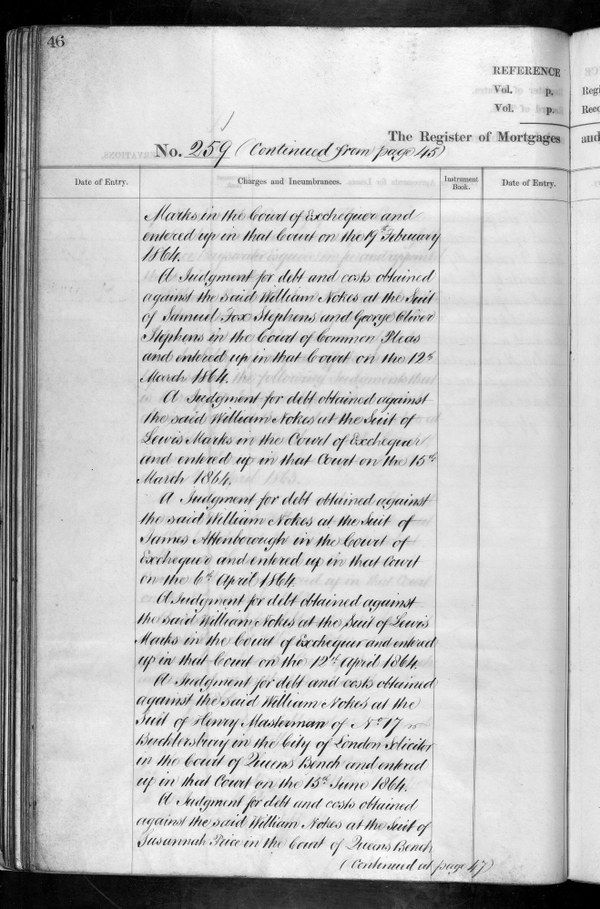 46
REFERENCE
Vol. p.
Vol. p.
Regi
Reco
The Register of Mortgages
and
No. 259 (Continued from page 45)
Date of Entry.
Charges and Incumbrances.
Instrument Book.
Date of Entry.
Marks in the Court of Exchequer and
entered up in that Court on the 19th February
1864.
A Judgment for debt and costs obtained
against the said William Nokes at the Suit
of Samuel Fox Stephens and George Oliver
Stephens in the Court of Common Pleas
and entered up in that Court on the 12th
March 1864.
A Judgment for debt obtained against
the said William Nokes at the Suit of
Lewis Marks in the Court of Exchequer
and entered up in that Court on the 15th
March 1864.
A Judgment for debt obtained against
the said William Nokes at the Suit of
James Attenborough in the Court of
Exchequer and entered up in that Court
on the 6th April 1864.
A Judgment for debt obtained against
the said William Nokes at the Suit of Lewis
Marks in the Court of Exchequer and entered
up in that Court on the 12th April 1864.
A Judgment for debt and costs obtained
against the said William Nokes at the
Suit of Henry Masterman of No 17
Bucklersbury in the City of London Solicitor
in the Court of Queens Bench and entered
up in that Court on the 15th June 1864.
A Judgment for debt and costs obtained
against the said William Nokes at the Suit of
Susannah Price in the Court of Queens Bench
(Continued at page 47)